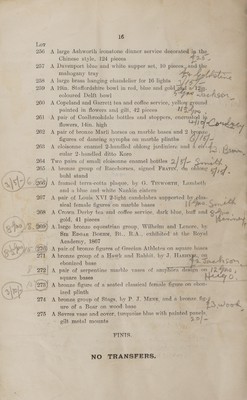 16
Lot
256 A large Ashworth ironstone dinner service decorated in the
Chinese style, 124 pieces
257 A Davenport blue and white supper set, 10 pieces, and the
mahogany tray
258 A large brass hanging chandelier for 16 lights
259 A 19in. Staffordshire bowl in red, blue and gold
coloured Delft bowl
260 A Copeland and Garrett tea and coffee service, yellow ground
painted in flowers and gilt, 42 pieces
261 A pair of Coalbrookdale bottles and stoppers, encrusted in
flowers, 14in. high
262 A pair of bronze Marli horses on marble bases and 2 bronze
figures of dancing nymphs on marble plinths
263 A cloisonne enamel 2-handled oblong jardiniere and a
cular 2-handled ditto Koro
264 Two pairs of small cloisonne enamel bottles 2/5/- Smith
265 A bronze group of Racehorses, signed Fratin, on oblong
bold stand
266 A framed terra-cotta plaque, by G. Tinworth, Lambeth
and a blue and white Nankin cistern
267 A pair of Louis XVI 2-light candelabra supported by clas-
sical female figures on marble bases
268 A Crown Derby tea and coffee service, dark blue, buff and
gold, 41 pieces
269 A large bronze equestrian group, Wilhelm and Lenore, by
Sir Edgar Boehm, Bt., R.A., exhibited at the Royal
Academy, 1867
270 A pair of bronze figures of Grecian Athletes on square bases
271 A bronze group of a Hawk and Rabbit, by J.
ebonized base
272 A pair of serpentine marble vases of amphora design on
square bases
273 A bronze figure of a seated classical female figure on ebon-
ized plinth
274 A bronze group of Stags, by P. J. Mene, and a bronze fig-
ure of a Boar on wood base
275 A Sevres vase and cover, turquoise blue with painted panels
gilt metal mounts
FINIS.
NO TRANSFERS.